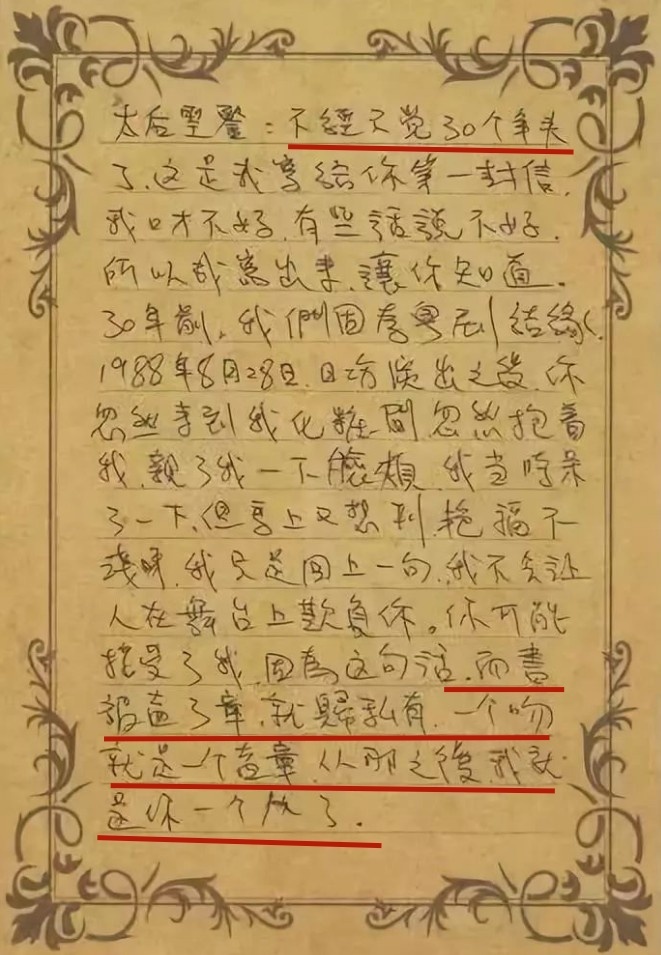 太后聖鑒：不經不觉30个年头
了，这是我寫給你第一封信，
我口才不好，有些話說不好，
所以我寫出来，讓你知道。
30年前，我們因為粵剧結緣，
1988年8月28日，日场演出之後，你
忽然来到我化粧間忽然抱着
我，親了我一下臉頰，我当時呆
了一下，但馬上又想到艳福不
淺呀，我只是回上一句，我不会让
人在舞台上欺負你。你可能
接受了我，因為这句话，而書
被盖了章，就歸私有，一个吻
就是一个盖章，从那之後，我就
是你一个人了。